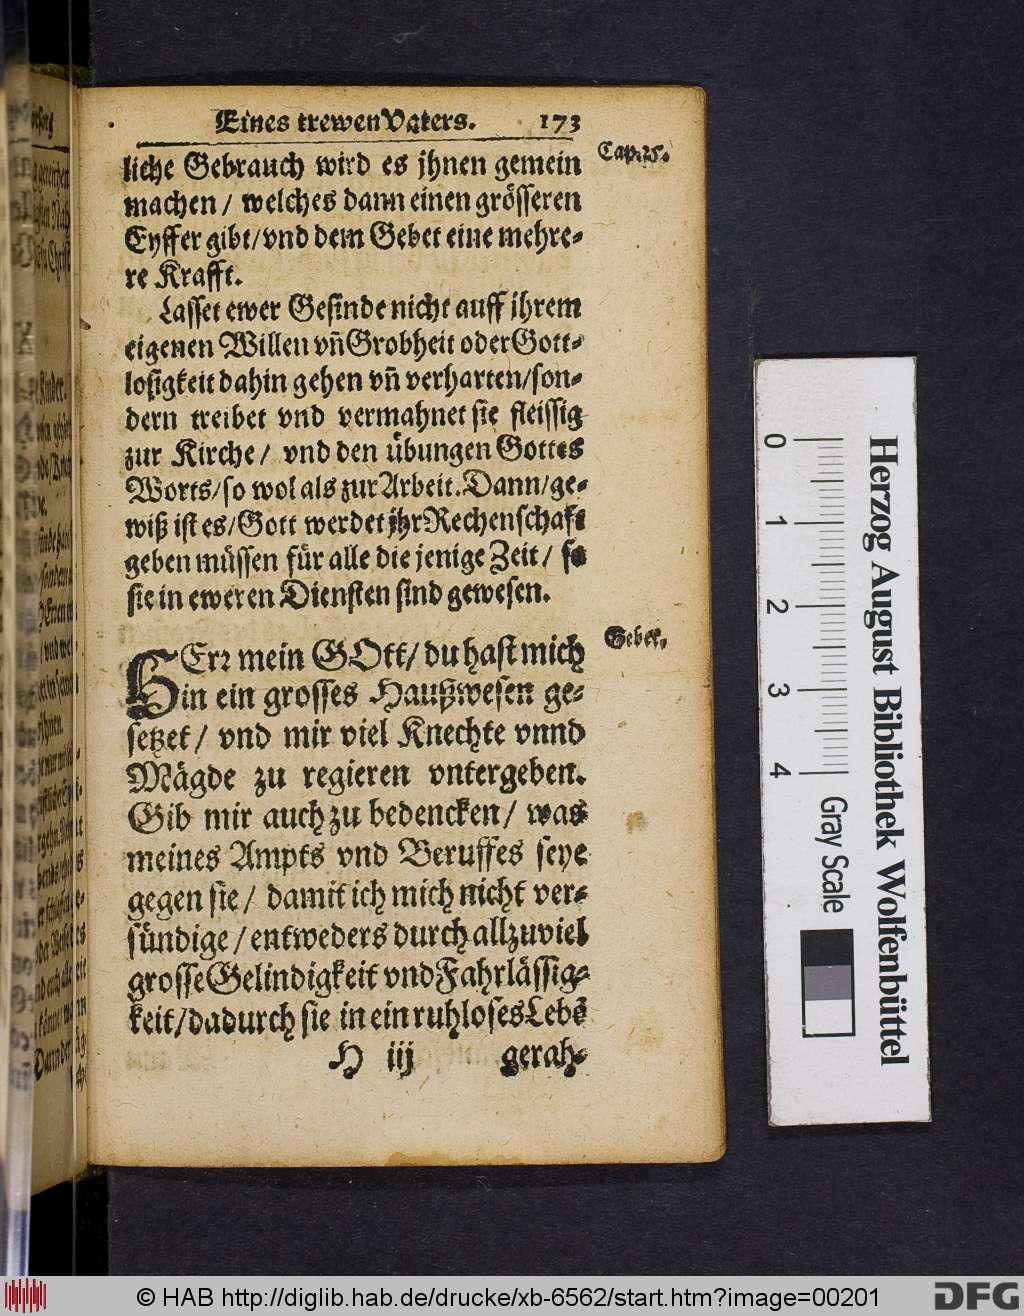 Eines trewen Vaters. 173
liche Gebrauch wird es jhnen gemein
Cap. 25.
machen / welches dann einen grösseren
Eyffer gibt / vnd dem Gebet eine mehre-
re Krafft.
Lasset ewer Gesinde nicht auff jhrem
eigenen Willen vñ Grobheit oder Gott-
losigkeit dahin gehen vñ verharten / son-
dern treibet vnd vermahnet sie fleissig
zur Kirche / vnd den übungen Gottes
Worts / so wol als zur Arbeit. Dann / ge-
wiß ist es / Gott werdet jhr Rechenschaft
geben müssen für alle die jenige Zeit / so
sie in eweren Diensten sind gewesen.
Gebet.
HErr mein GOtt / du hast mich
in ein grosses Haußwesen ge-
setzet / vnd mir viel Knechte vnnd
Mägde zu regieren vntergeben.
Gib mir auch zu bedencken / was
meines Ampts vnd Beruffes seye
gegen sie / damit ich mich nicht ver-
sündige / entweders durch allzuviel
grosse Gelindigkeit vnd Fahrlässig-
keit / dadurch sie in ein ruhloses Lebẽ
H iij gerah-
0 1 2 3 4
Gray Scale
Herzog August Bibliothek Wolfenbüttel
© HAB http://diglib.hab.de/drucke/xb-6562/start.htm?image=00201
DFG